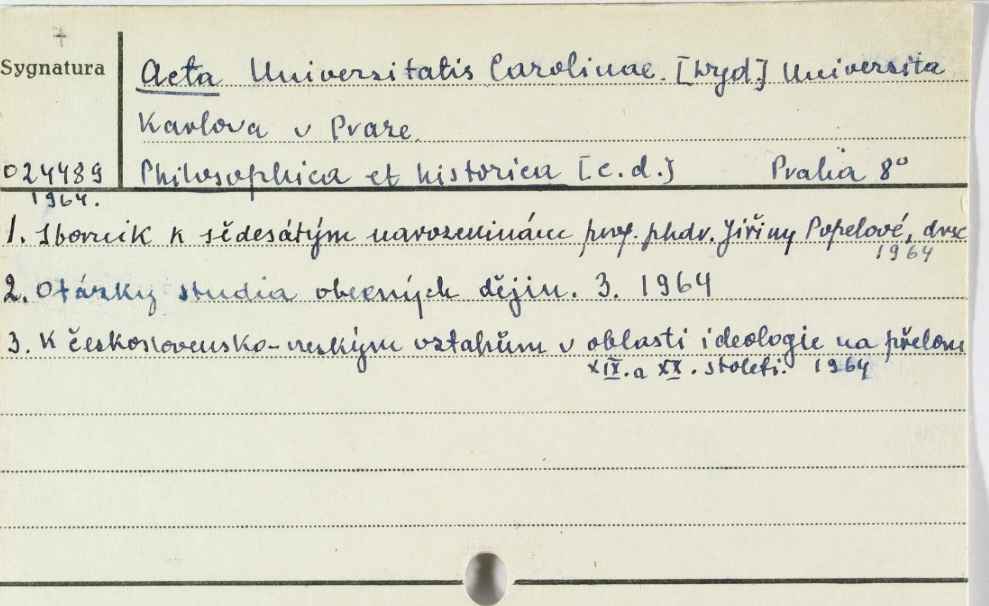 Sygnatura
Acta Universitatis Carolinae. [Wyd] Universita
Karlova v Praze.
024489 Philosophica et historica [c.d.] Praha 8°
1964.
1. Sborník k šedesátým narozeninám prof. phdr. Jiřiny Popelové, drsc
1964
2. Otázky studia obecných dějin. 3. 1964
3. K československo-ruským vztahům v oblasti ideologie na přelomu
XIX. a XX. století. 1964